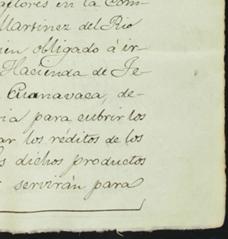 actores en la Com-
Martinez del Rio
ien obligado á ir-
Hacienda de Te-
Cuanavaca, de-
ria para cubrir los
ar los réditos de los
s dichos productos
servirán para